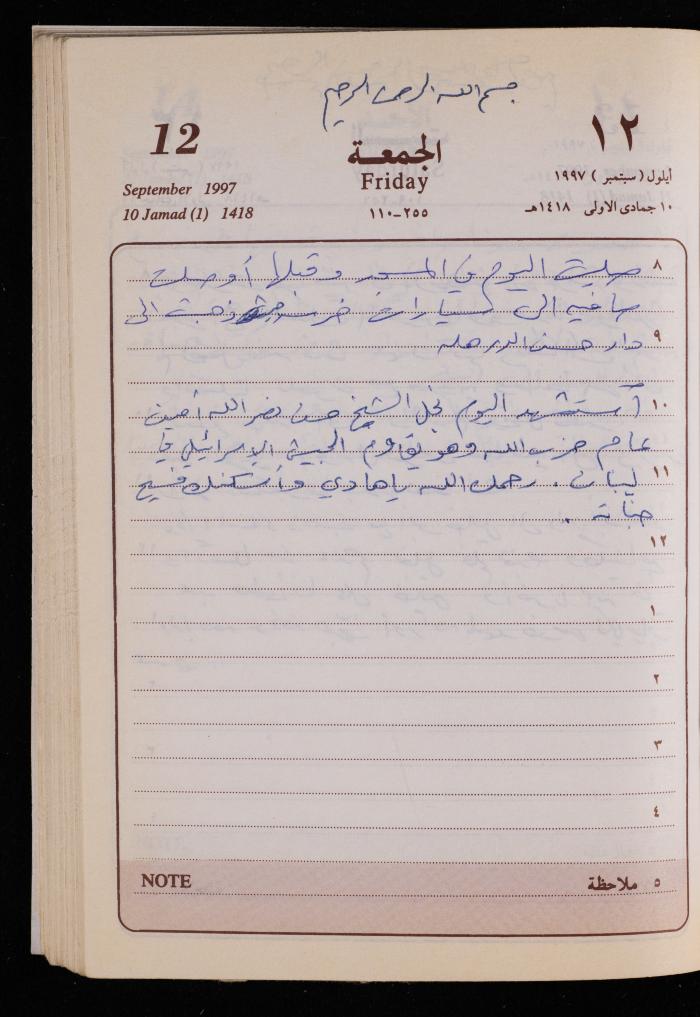 بسم الله الرحمن الرحيم
12
الجمعة
١٢
September 1997
Friday
أيلول ( سبتمبر ) ١٩٩٧
10 Jamad (1) 1418
٢٥٥-١١٠
١٠ جمادى الاولى ١٤١٨هـ
٨ صليت اليوم في المسجد وقبلها أوصلت
الى سيارات ذهبت الى
٩ دار حسن
١٠ أستشهد اليوم نجل الشيخ حسن نصر الله أمين
عام حزب الله وهو يقاوم الجيش الإسرائيلي في
١١ لبنان . رحمك الله يا هادي وأسكنك فسيح
جناته .
١٢
١
٢
٣
٤
NOTE
٥ ملاحظة